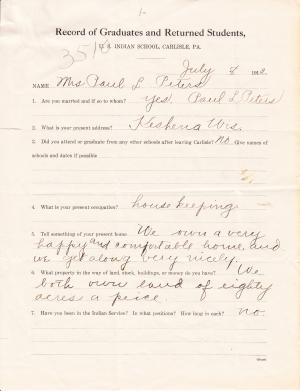 1-
Record of Graduates and Returned Students,
U. S. INDIAN SCHOOL, CARLISLE, PA.
3510
July 8 191
NAME Mrs Paul L Peters
1. Are you married and if so to whom? Yes. Paul L Peters
2. What is your present address? Keshena Wis.
3. Did you attend or graduate from any other schools after leaving Carlisle? No Give names of
schools and dates if possible
4. What is your present occupation? housekeeping
5. Tell something of your present home. We own a very
happy and comfortable home, and
we get along very nicely.
6. What property in the way of land, stock, buildings, or money do you have? We
both own land of eighty
acres a peice.
7. Have you been in the Indian Service? In what positions? How long in each? no.